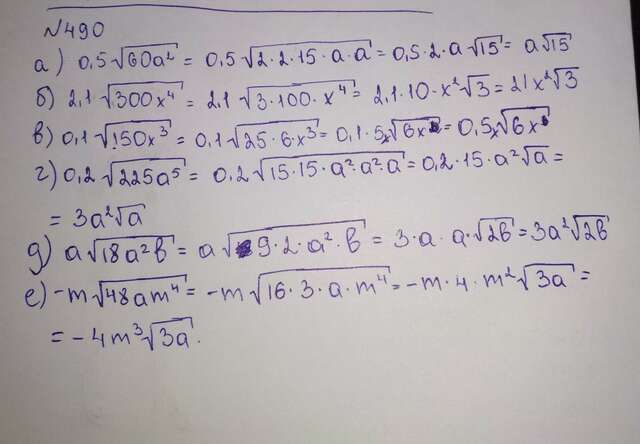 №490
а) 0,5√60a² = 0,5√2·2·15·a·a = 0,5·2·a√15 = a√15
б) 2,1√300x⁴ = 2,1√3·100·x⁴ = 2,1·10·x²√3 = 21x²√3
в) 0,1√150x³ = 0,1√25·6·x³ = 0,1·5x√6x = 0,5x√6x
г) 0,2√225a⁵ = 0,2√15·15·a²·a²·a = 0,2·15·a²√a =
= 3a²√a
д) a√18a²b = a√9·2·a²·b = 3·a·a·√2b = 3a²√2b
е) -m√48am⁴ = -m√16·3·a·m⁴ = -m·4·m²√3a =
= -4m³√3a.